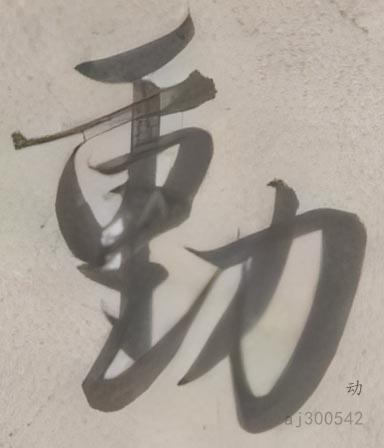 動
动
aj300542